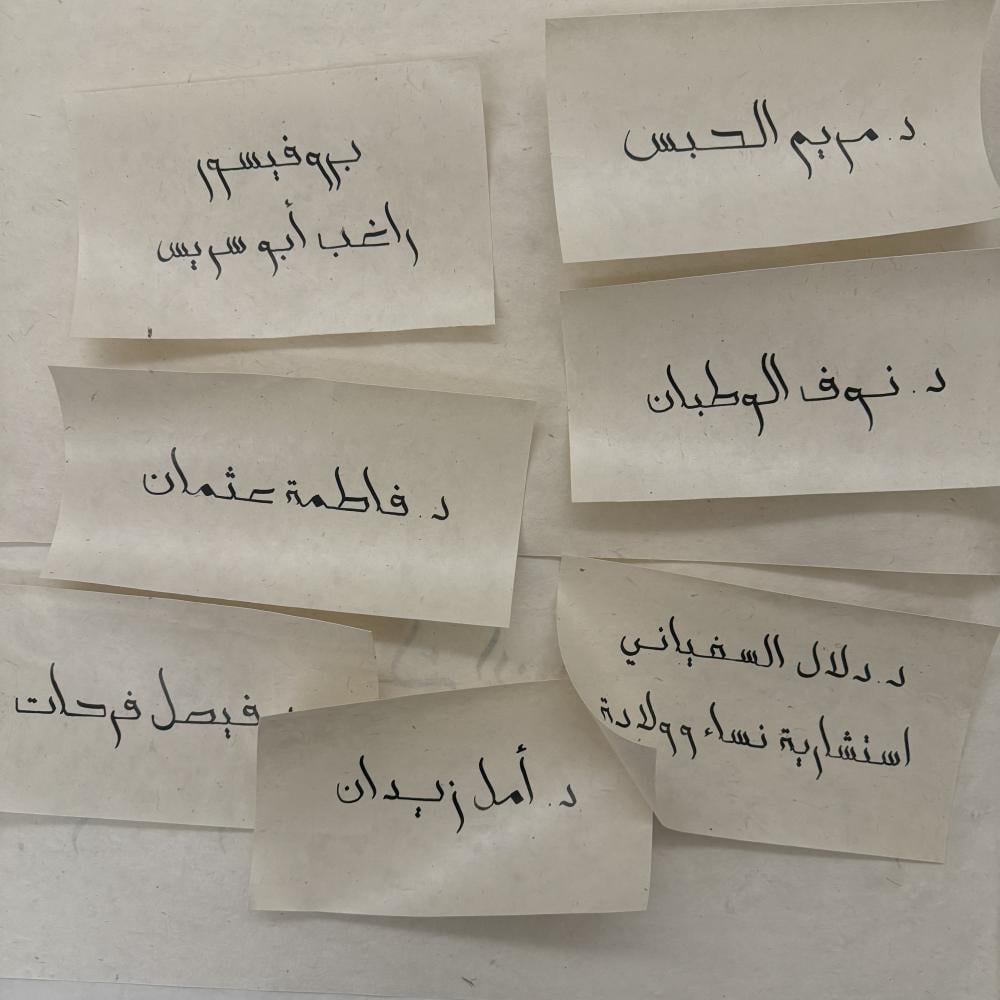 د. مريم الحبس
بروفيسور
راغب أبو سريس
د. نوف الوطبان
د. فاطمة عثمان
د. دلال السفياني
استشارية نساء وولادة
فيصل فرحات
د. أمل زيدان